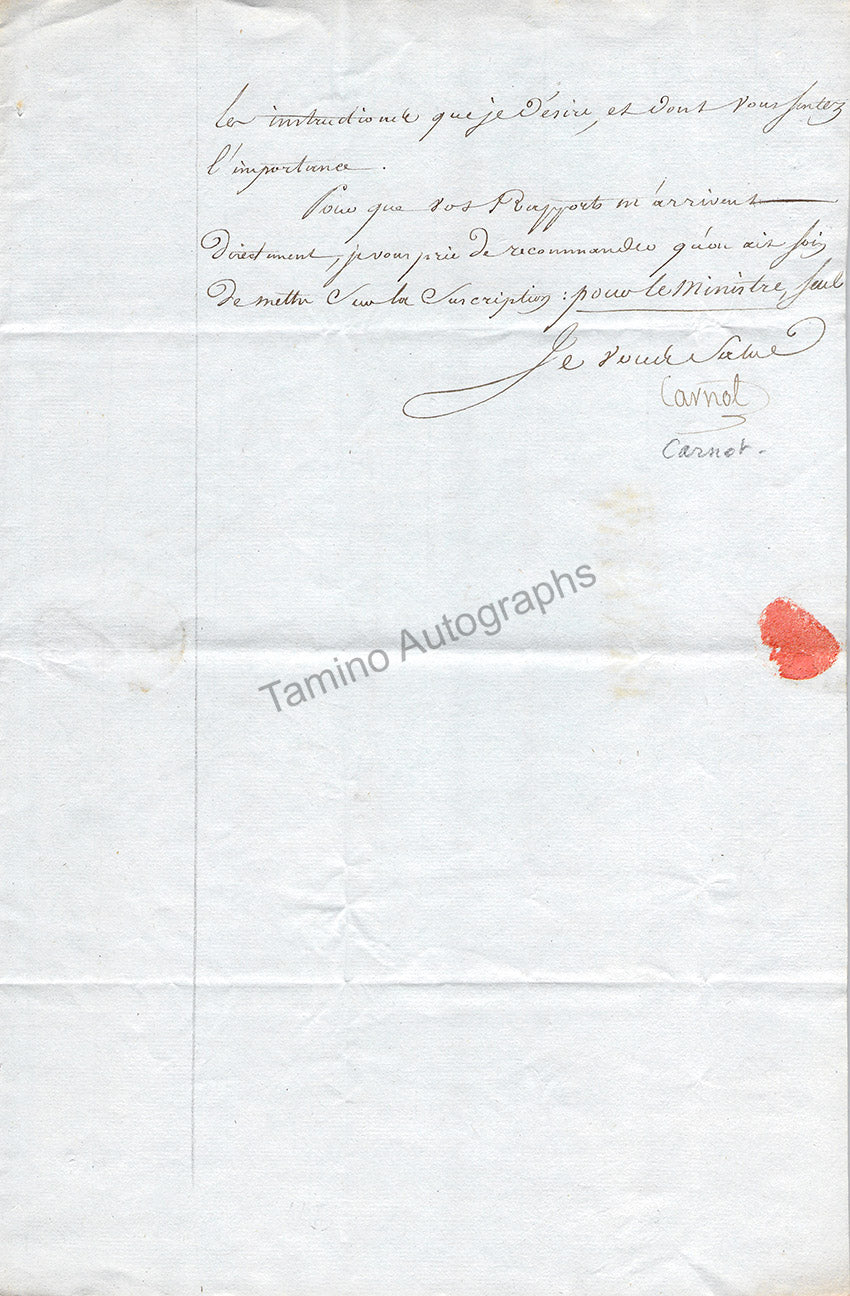 les instructions que je désire, et dont vous sentez
l'importance.
Pour que vos Rapports m'arrivent
directement, je vous prie de recommander qu'on ait soin
de mettre sur la suscription : pour le Ministre, seul
Je vous salue
Carnot
Carnot.
Tamino Autographs